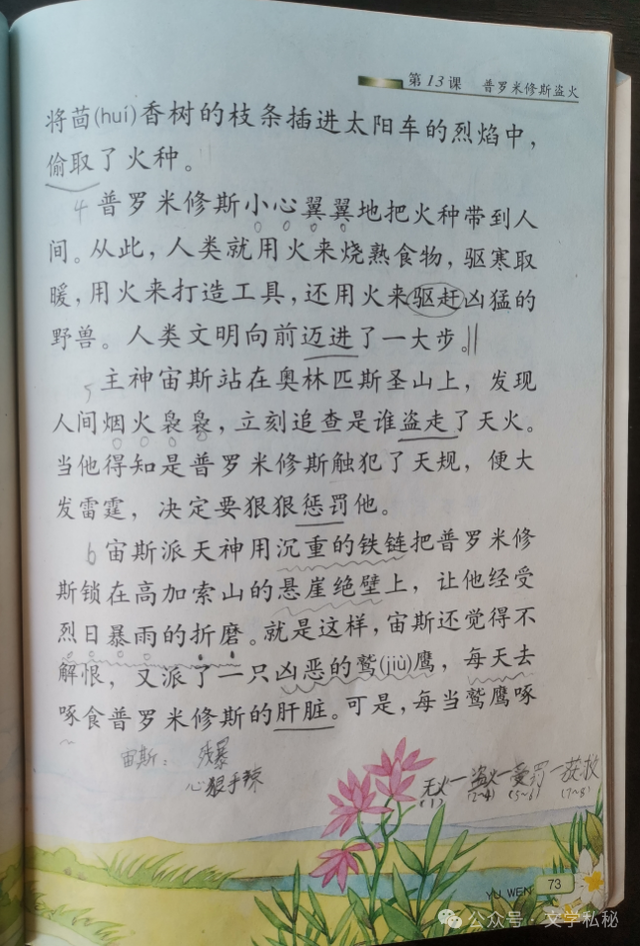 第13课 普罗米修斯盗火
将茴(huí)香树的枝条插进太阳车的烈焰中，
偷取了火种。
4 普罗米修斯小心翼翼地把火种带到人
间。从此，人类就用火来烧熟食物，驱寒取
暖，用火来打造工具，还用火来驱赶凶猛的
野兽。人类文明向前迈进了一大步。
5 主神宙斯站在奥林匹斯圣山上，发现
人间烟火袅袅，立刻追查是谁盗走了天火。
当他得知是普罗米修斯触犯了天规，便大
发雷霆，决定要狠狠惩罚他。
6 宙斯派天神用沉重的铁链把普罗米修
斯锁在高加索山的悬崖绝壁上，让他经受
烈日暴雨的折磨。就是这样，宙斯还觉得不
解恨，又派了一只凶恶的鹫(jiù)鹰，每天去
啄食普罗米修斯的肝脏。可是，每当鹫鹰啄
宙斯：残暴
心狠手辣
无火—盗火—受罚—获救
(1) (2~4) (5~6) (7~8)
YU WEN 73
公众号·文学私秘